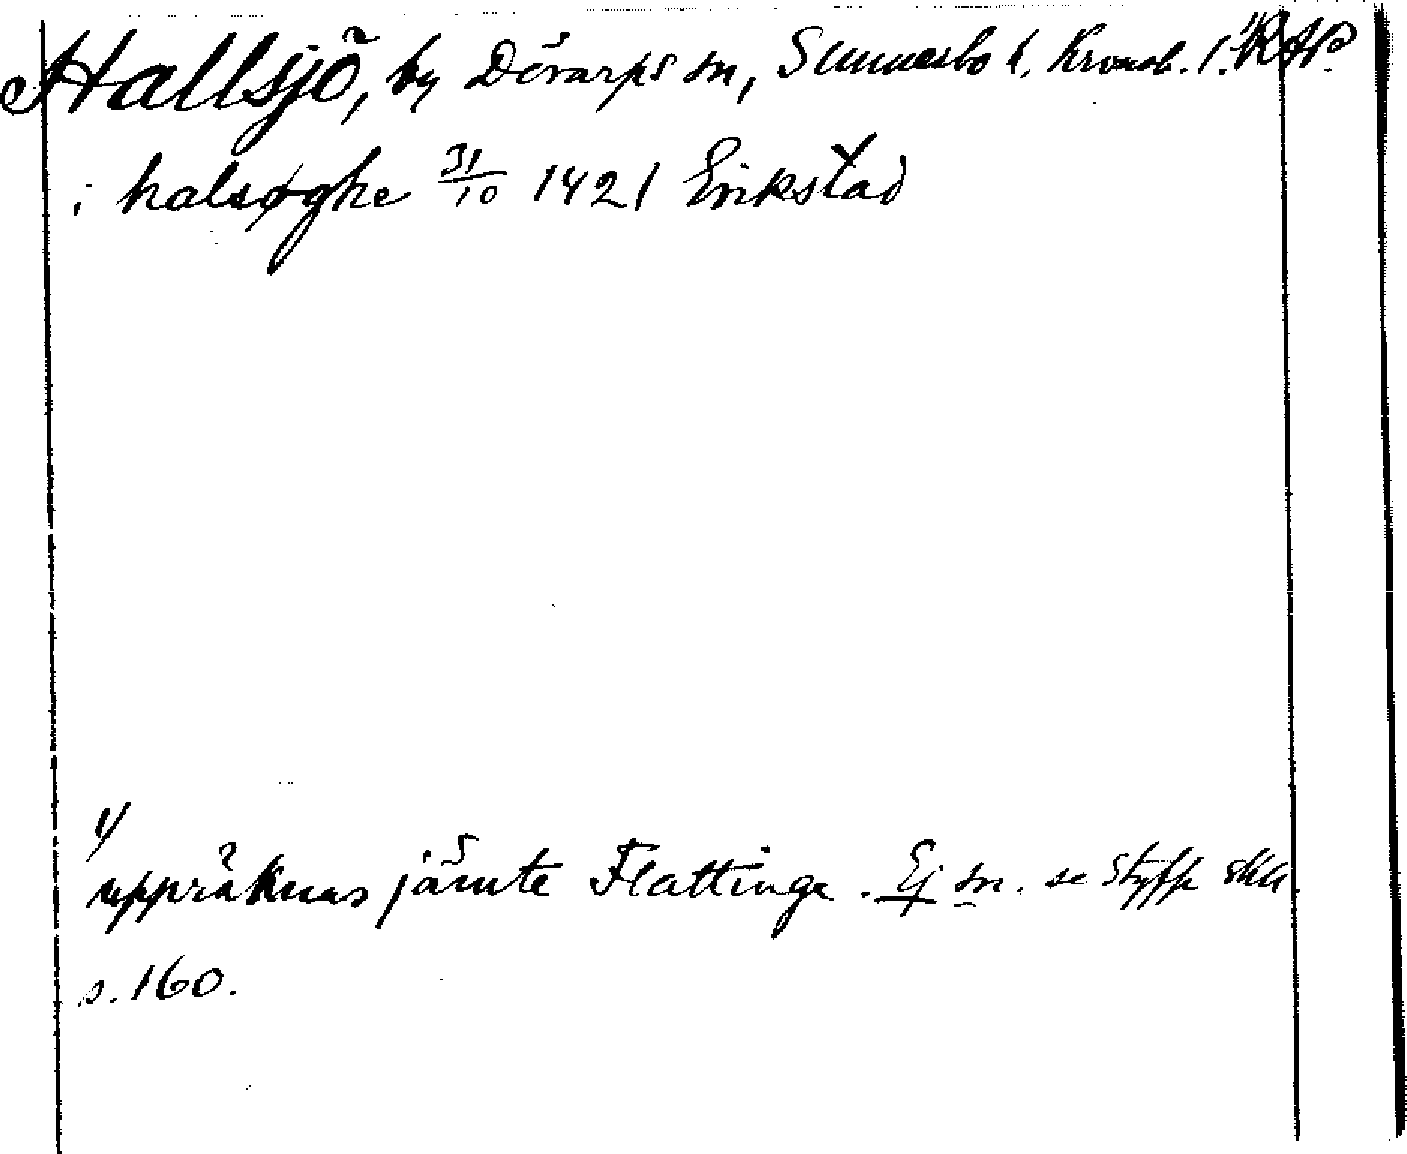 Hallsjö, by Dörarps sn, Sunnerbo h. Kronob. l. 1) RAP
i halsøghe 31/10 1421 Erikstad
1)
uppräknas jämte Flattinge. Ej sn. se Styffe SKU
s. 160.